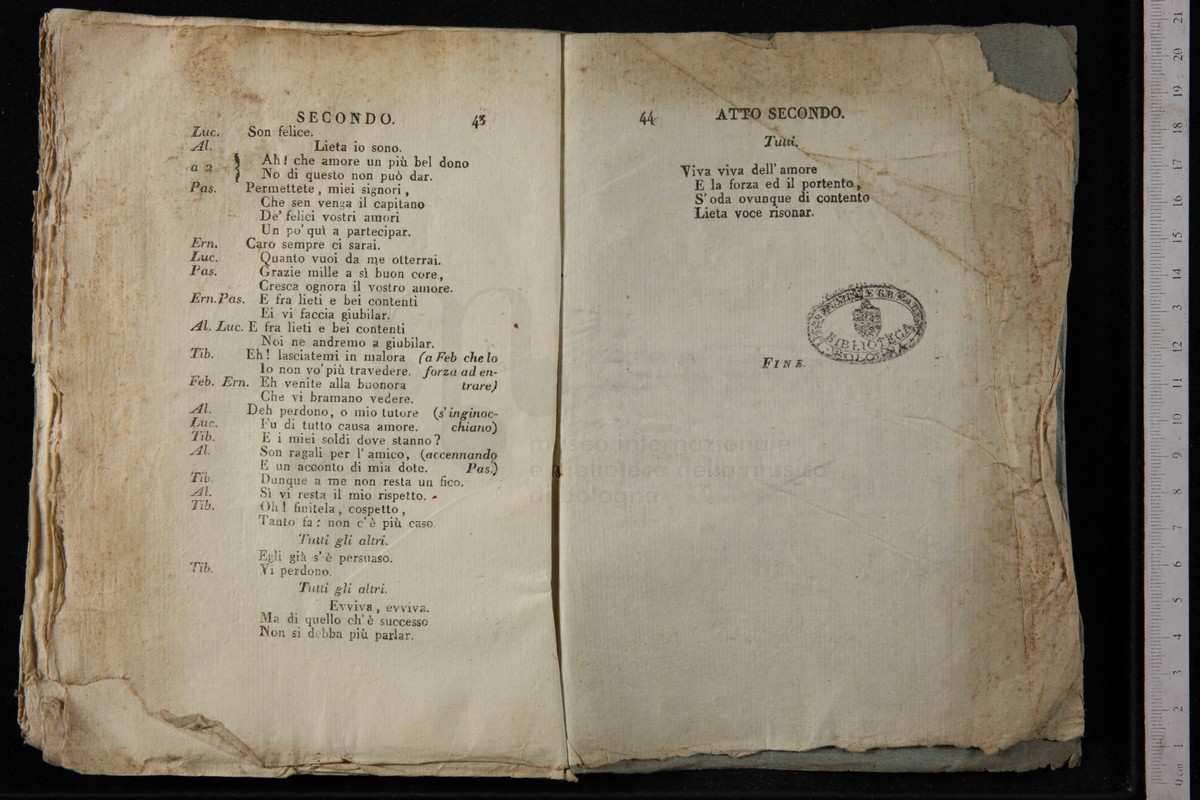 SECONDO. 43
Luc. Son felice.
Al. Lieta io sono.
a 2 } Ah! che amore un più bel dono
No di questo non può dar.
Pas. Permettete, miei signori,
Che sen venga il capitano
De' felici vostri amori
Un po' quì a partecipar.
Ern. Caro sempre ci sarai.
Luc. Quanto vuoi da me otterrai.
Pas. Grazie mille a sì buon core,
Cresca ognora il vostro amore.
Ern. Pas. E fra lieti e bei contenti
Ei vi faccia giubilar.
Al. Luc. E fra lieti e bei contenti
Noi ne andremo a giubilar.
Tib. Eh! lasciatemi in malora (a Feb che lo
Io non vo' più travedere. forza ad en-
Feb. Ern. Eh venite alla buonora trare)
Che vi bramano vedere.
Al. Deh perdono, o mio tutore (s' inginoc-
Luc. Fu di tutto causa amore. chiano)
Tib. E i miei soldi dove stanno?
Al. Son ragali per l' amico, (accennando
E un acconto di mia dote. Pas.)
Tib. Dunque a me non resta un fico.
Al. Sì vi resta il mio rispetto.
Tib. Oh! finitela, cospetto,
Tanto fa: non c' è più caso.
Tutti gli altri.
Egli già s' è persuaso.
Tib. Vi perdono.
Tutti gli altri.
Evviva, evviva.
Ma di quello ch' è successo
Non si debba più parlar.
44 ATTO SECONDO.
Tutti.
Viva viva dell' amore
E la forza ed il portento,
S' oda ovunque di contento
Lieta voce risonar.
BIBLIOTECA
BOLOGNA
FINE.
museo internazionale
e biblioteca della musica
di bologna
0 cm 1 2 3 4 5 6 7 8 9 10 11 12 13 14 15 16 17 18 19 20 21